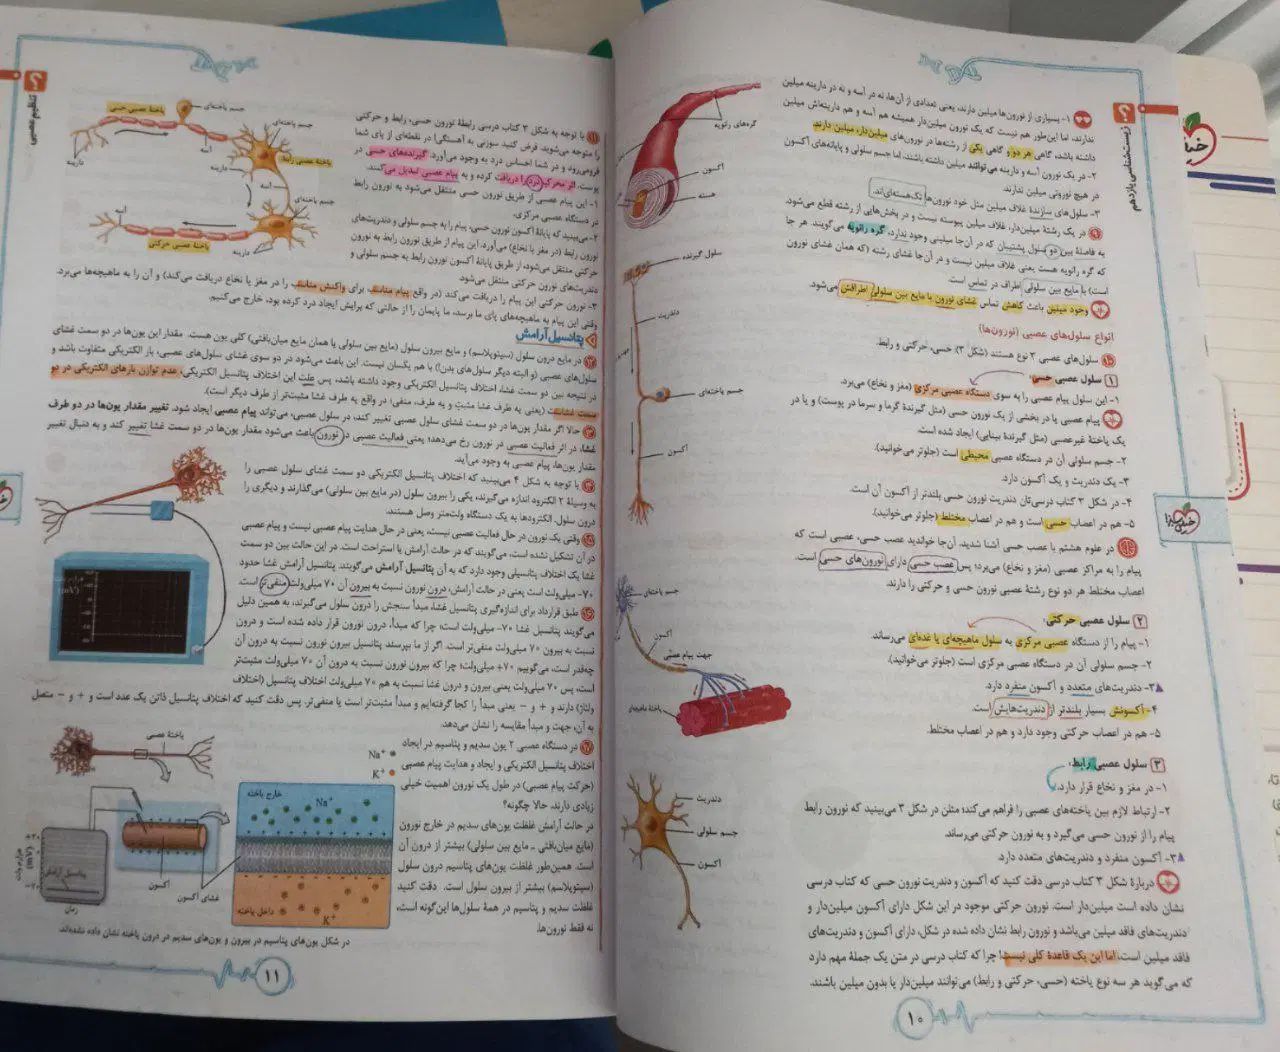 زیست‌شناسی یازدهم
۱- بسیاری از نورون‌ها میلین دارند، یعنی تعدادی از آن‌ها، نه در آسه و نه در دارینه میلین
ندارند. اما این‌طور هم نیست که یک نورون میلین‌دار همیشه هم آسه و هم دارینه‌اش میلین
داشته باشد، گاهی هر دو و گاهی یکی از رشته‌ها در نورون‌های میلین‌دار، میلین دارند.
۲- در یک نورون آسه و دارینه می‌توانند میلین داشته باشند، اما جسم سلولی و پایانه‌های آکسون
در هیچ نورونی میلین ندارند.
۳- سلول‌های سازندۀ غلاف میلین مثل خود نورون‌ها تک‌هسته‌ای‌اند.
در یک رشتۀ میلین‌دار، غلاف میلین پیوسته نیست و در بخش‌هایی از رشته قطع می‌شود.
به فاصلۀ بین دو سلول پشتیبان که در آن‌جا میلینی وجود ندارد، گره رانویه می‌گویند. هر جا
که گره رانویه هست یعنی غلاف میلین نیست و در آن‌جا غشای رشته (که همان غشای نورون
است) با مایع بین سلولی اطراف در تماس است.
وجود میلین باعث کاهش تماس غشای نورون با مایع بین سلولی اطرافش می‌شود.
گره‌های رانویه
آکسون
هسته
انواع سلول‌های عصبی (نورون‌ها)
۱۰ سلول‌های عصبی ۳ نوع هستند (شکل ۳): حسی، حرکتی و رابط.
۱ سلول عصبی حسی:
۱- این سلول پیام عصبی را به سوی دستگاه عصبی مرکزی (مغز و نخاع) می‌برد.
پیام عصبی یا در بخشی از یک نورون حسی (مثل گیرندۀ گرما و سرما در پوست) و یا در
یک یاختۀ غیرعصبی (مثل گیرندۀ بینایی) ایجاد شده است.
۲- جسم سلولی آن در دستگاه عصبی محیطی است (جلوتر می‌خوانید).
۳- یک دندریت و یک آکسون دارد.
۴- در شکل ۳ کتاب درسی‌تان دندریت نورون حسی بلندتر از آکسون آن است.
۵- هم در اعصاب حسی است و هم در اعصاب مختلط (جلوتر می‌خوانید).
در علوم هشتم با عصب حسی آشنا شدید. آن‌جا خواندید عصب حسی، عصبی است که
پیام را به مراکز عصبی (مغز و نخاع) می‌برد؛ پس عصب حسی دارای نورون‌های حسی است.
اعصاب مختلط هر دو نوع رشتۀ عصبی نورون حسی و حرکتی را دارند.
سلول گیرنده
دندریت
جسم یاخته‌ای
آکسون
۲ سلول عصبی حرکتی:
۱- پیام را از دستگاه عصبی مرکزی به سلول ماهیچه‌ای یا غده‌ای می‌رساند.
۲- جسم سلولی آن در دستگاه عصبی مرکزی است (جلوتر می‌خوانید).
۳- دندریت‌های متعدد و آکسون منفرد دارد.
۴- آکسونش بسیار بلندتر از دندریت‌هایش است.
۵- هم در اعصاب حرکتی وجود دارد و هم در اعصاب مختلط.
جسم یاخته‌ای
آکسون
جهت پیام عصبی
یاختۀ ماهیچه‌ای
۳ سلول عصبی رابط:
۱- در مغز و نخاع قرار دارد.
۲- ارتباط لازم بین یاخته‌های عصبی را فراهم می‌کند؛ مثلن در شکل ۳ می‌بینید که نورون رابط
پیام را از نورون حسی می‌گیرد و به نورون حرکتی می‌رساند.
۳- آکسون منفرد و دندریت‌های متعدد دارد.
دندریت
جسم سلولی
آکسون
دربارۀ شکل ۳ کتاب درسی دقت کنید که آکسون و دندریت نورون حسی که کتاب درسی
نشان داده است میلین‌دار است. نورون حرکتی موجود در این شکل دارای آکسون میلین‌دار و
دندریت‌های فاقد میلین می‌باشد و نورون رابط نشان داده شده در شکل، دارای آکسون و دندریت‌های
فاقد میلین است، اما این یک قاعدۀ کلی نیست! چرا که کتاب درسی در متن یک جملۀ مهم دارد
که می‌گوید هر سه نوع یاخته (حسی، حرکتی و رابط) می‌توانند میلین‌دار یا بدون میلین باشند.
۱۰
تنظیم عصبی
۱۱ با توجه به شکل ۳ کتاب درسی رابطۀ نورون حسی، رابط و حرکتی
را متوجه می‌شوید. فرض کنید سوزنی به آهستگی در نقطه‌ای از پای شما
فرومی‌رود و در شما احساس درد به وجود می‌آورد. گیرنده‌های حسی در
پوست، اثر محرک درد را دریافت کرده و به پیام عصبی تبدیل می‌کنند.
۱- این پیام عصبی از طریق نورون حسی منتقل می‌شود به نورون رابط
در دستگاه عصبی مرکزی.
۲- می‌بینید که پایانۀ آکسون نورون حسی، پیام را به جسم سلولی و دندریت‌های
نورون رابط (در مغز یا نخاع) می‌آورد. این پیام از طریق نورون رابط به نورون
حرکتی منتقل می‌شود، از طریق پایانۀ آکسون نورون رابط به جسم سلولی و
دندریت‌های نورون حرکتی منتقل می‌شود.
۳- نورون حرکتی این پیام را دریافت می‌کند (در واقع پیام مناسب برای واکنش مناسب را در مغز یا نخاع دریافت می‌کند) و آن را به ماهیچه‌ها می‌برد.
وقتی این پیام به ماهیچه‌های پای ما برسد، ما پایمان را از حالتی که برایش ایجاد درد کرده بود، خارج می‌کنیم.
یاختۀ عصبی حسی
جسم یاخته‌ای
دارینه
آسه
جسم یاخته‌ای
یاختۀ عصبی رابط
دارینه
آسه
جسم یاخته‌ای
آسه
یاختۀ عصبی حرکتی
دارینه
پتانسیل آرامش
۱۲ در مایع درون سلول (سیتوپلاسم) و مایع بیرون سلول (مایع بین سلولی یا همان مایع میان‌بافتی) کلی یون هست. مقدار این یون‌ها در دو سمت غشای
سلول‌های عصبی (و البته دیگر سلول‌های بدن) با هم یکسان نیست. این باعث می‌شود در دو سوی غشای سلول‌های عصبی، بار الکتریکی متفاوت باشد و
در نتیجه بین دو سمت غشا، اختلاف پتانسیل الکتریکی وجود داشته باشد، پس علت این اختلاف پتانسیل الکتریکی، عدم توازن بارهای الکتریکی در دو
سمت غشاست (یعنی یه طرف غشا مثبت و یه طرف، منفی؛ در واقع یه طرف غشا مثبت‌تر از طرف دیگر است).
۱۳ حالا اگر مقدار یون‌ها در دو سمت غشای سلول عصبی تغییر کند، در سلول عصبی، می‌تواند پیام عصبی ایجاد شود. تغییر مقدار یون‌ها در دو طرف
غشا، در اثر فعالیت عصبی در نورون رخ می‌دهد؛ یعنی فعالیت عصبی در نورون باعث می‌شود مقدار یون‌ها در دو سمت غشا تغییر کند و به دنبال تغییر
مقدار یون‌ها، پیام عصبی به وجود می‌آید.
۱۴ با توجه به شکل ۴ می‌بینید که اختلاف پتانسیل الکتریکی دو سمت غشای سلول عصبی را
به وسیلۀ ۲ الکترود اندازه می‌گیرند، یکی را بیرون سلول (در مایع بین سلولی) می‌گذارند و دیگری را
درون سلول. الکترودها به یک دستگاه ولت‌متر وصل هستند.
۱۵ وقتی یک نورون در حال فعالیت عصبی نیست، یعنی در حال هدایت پیام عصبی نیست و پیام عصبی
در آن تشکیل نشده است، می‌گویند که در حالت آرامش یا استراحت است. در این حالت بین دو سمت
غشا یک اختلاف پتانسیلی وجود دارد که به آن پتانسیل آرامش می‌گویند. پتانسیل آرامش غشا حدود
۷۰- میلی‌ولت است یعنی در حالت آرامش، درون نورون نسبت به بیرون آن ۷۰ میلی‌ولت منفی‌تر است.
۱۶ طبق قرارداد برای اندازه‌گیری پتانسیل غشا، مبدأ سنجش را درون سلول می‌گیرند، به همین دلیل
می‌گویند پتانسیل غشا ۷۰- میلی‌ولت است؛ چرا که مبدأ، درون نورون قرار داده شده است و درون
نسبت به بیرون ۷۰ میلی‌ولت منفی‌تر است. اگر از ما بپرسند پتانسیل بیرون نورون نسبت به درون آن
چه‌قدر است، می‌گوییم ۷۰+ میلی‌ولت؛ چرا که بیرون نورون نسبت به درون آن ۷۰ میلی‌ولت مثبت‌تر
است، پس ۷۰ میلی‌ولت یعنی بیرون و درون غشا نسبت به هم ۷۰ میلی‌ولت اختلاف پتانسیل (اختلاف
ولتاژ) دارند و + و - یعنی مبدأ را کجا گرفته‌ایم و مبدأ مثبت‌تر است یا منفی‌تر. پس دقت کنید که اختلاف پتانسیل ذاتن یک عدد است و + و - متصل
به آن، جهت و مبدأ مقایسه را نشان می‌دهد.
۱۷ در دستگاه عصبی ۲ یون سدیم و پتاسیم در ایجاد
اختلاف پتانسیل الکتریکی و ایجاد و هدایت پیام عصبی
(حرکت پیام عصبی) در طول یک نورون اهمیت خیلی
زیادی دارند. حالا چگونه؟
در حالت آرامش غلظت یون‌های سدیم در خارج نورون
(مایع میان‌بافتی - مایع بین سلولی) بیشتر از درون آن
است. همین‌طور غلظت یون‌های پتاسیم درون سلول
(سیتوپلاسم) بیشتر از بیرون سلول است. دقت کنید
غلظت سدیم و پتاسیم در همۀ سلول‌ها این‌گونه است،
نه فقط نورون‌ها.
یاختۀ عصبی
Na⁺
K⁺
خارج یاخته
Na⁺
داخل یاخته
K⁺
آکسون
غشای آکسون
پتانسیل آرامش
زمان
در شکل یون‌های پتاسیم در بیرون و یون‌های سدیم در درون یاخته نشان داده نشده‌اند.
۱۱